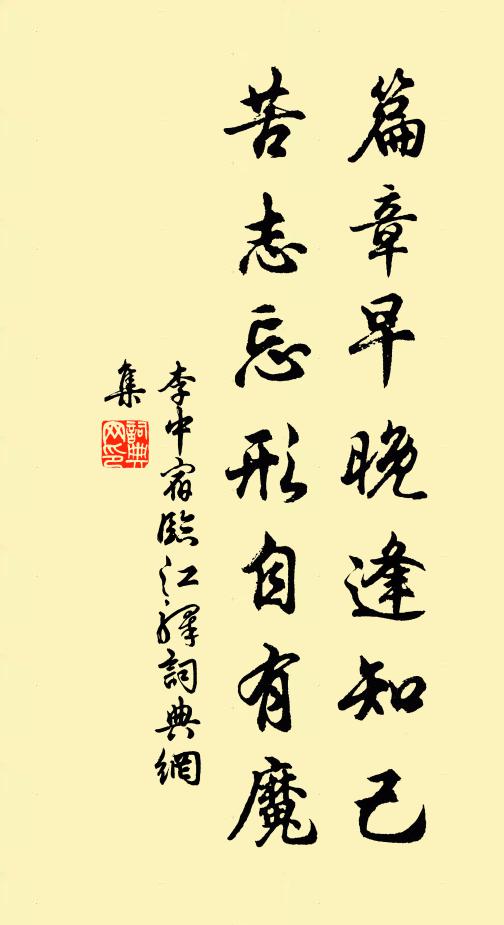 篇章早晚逢知己
苦志忘形自有魔
李中宿臨江驛詞典網
集
詞典
网印